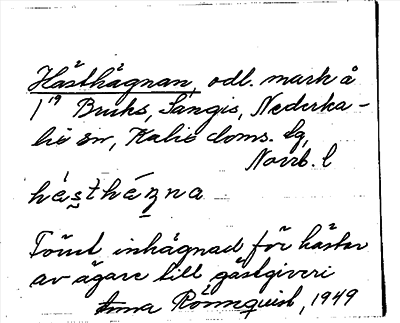 Hästhägnan, odl. mark å
1¹⁹ Bruks, Sangis, Nederka-
lix sn, Kalix doms. lg,
Norrb. l
hę́s̨thę́ŋna
Förut inhägnad för hästar
av ägare till gästgiveri
Anna Rönnquist, 1949